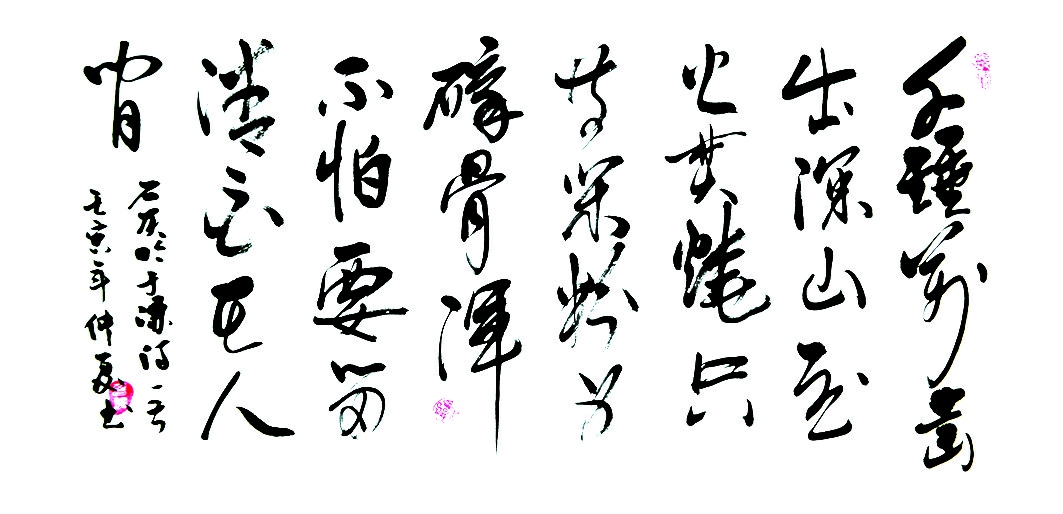 千锤萬凿
出深山烈
火焚燒只
等闲粉身
碎骨浑
不怕要留
清白在人
间
石灰吟于谦诗一首
壬寅年仲夏书